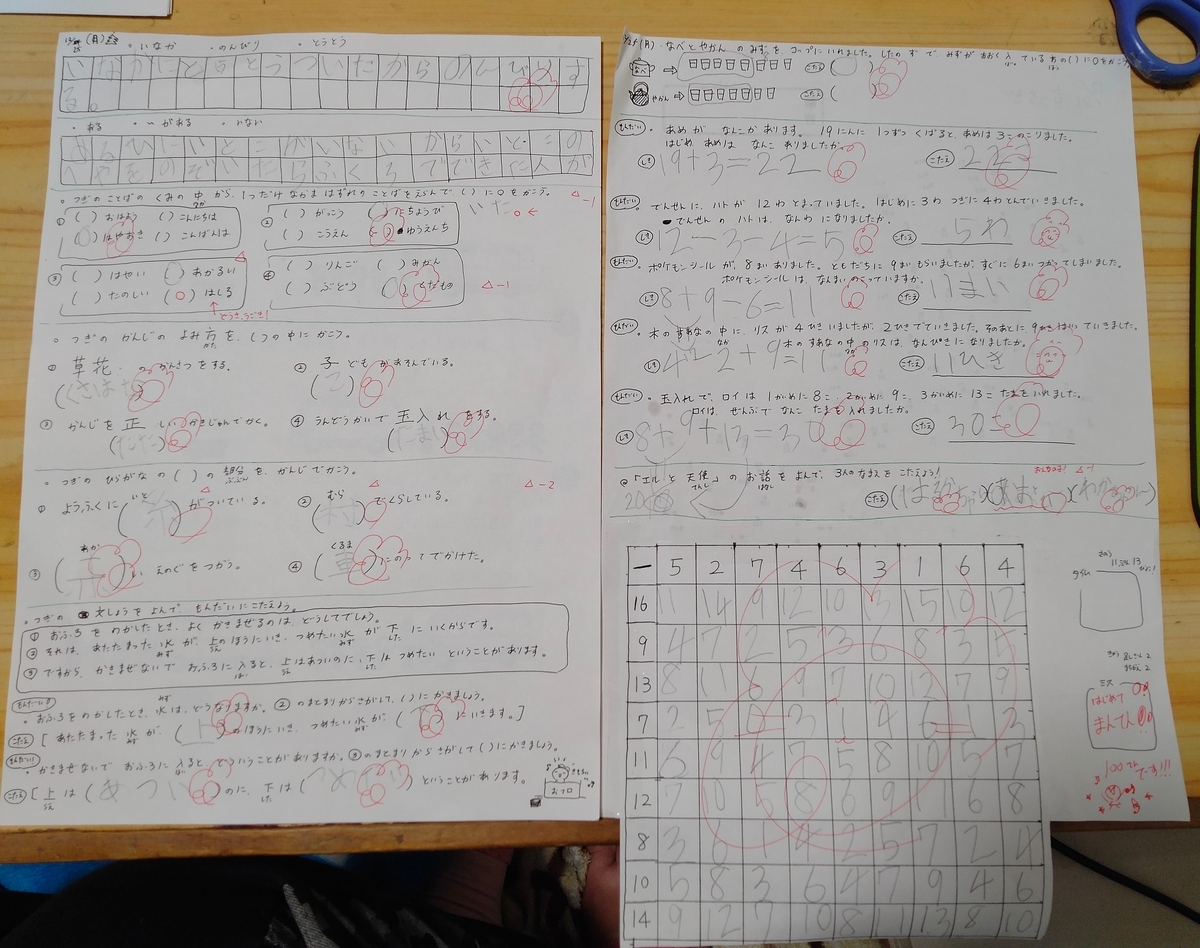 (月)
・いなか ・のんびり ・とうとう
いなかにとうとうついたからのんびりす
る。
・ある ・いがある ・いない
あるひにいとこがいないからいとこの
へやをのぞいたらふくろうでてきた人が
いた。
・つぎのことばのくみの中から、1つだけなかまはずれのことばをえらんで、( )に○をかこう。 △-1
① ( ) おはよう ( ) こんにちは
( ) はやおき ( ) こんばんは
② ( ) がっこう ( ) にちようび
( ) こうえん ( ) ゆうえんち
③ ( ) はやい ( ) あかるい
( ) たのしい (○) はしる
④ ( ) りんご ( ) みかん
( ) ぶどう ( ) くだもの
△-1
・つぎのかんじのよみ方を、( )の中にかこう。
① 草花のかんさつをする。
(くさばな)
② 子どもがあそんでいる。
(こ)
③ かんじを正しいかきじゅんでかく。
(ただ)
④ うんどうかいで玉入れをする。
(たまい)
・つぎのひらがなの( )の部分を、かんじでかこう。
① ようふくに(糸)がついている。
いと
② むら
(村)でくらしている。
△-2
③ あか
( )いえのぐをつかう。
④ くるま
(車)にのってでかけた。
・つぎの文しょうをよんでもんだいにこたえよう。
① おふろをわかしたとき、よくかきまぜるのは、どうしてでしょう。
② それは、あたたまった水が、上のほうにいき、つめたい水が下にいくからです。
③ ですから、かきまぜないでおふろに入ると、上はあついのに、下はつめたいということがあります。
もんだい
・おふろをわかしたとき、水は、どうなりますか。②のまとまりからさがして、( )にかきましょう。
こたえ [あたたまった水が、(上)のほうにいき、つめたい水が、(下)にいきます。]
もんだい
・かきまぜないでおふろに入ると、どういうことがありますか。③のまとまりからさがして( )にかきましょう。
こたえ [上は(あつい)のに、下は(つめたい)ということがあります。
おフロ
(月)・なべとやかんのみずをコップにいれました。したのずでみずがおおく入っているほうの( )に○をかこう。
なべ → こたえ( )
やかん → こたえ( )
もんだい ・あめがなんこかあります。19にんに1つずつくばると、あめは3このこりました。
はじめあめはなんこありましたか。
しき 19+3=22 こたえ 22こ
もんだい ・でんせんに、ハトが12わとまっていました。はじめに3わつぎに4わとんでいきました。
でんせんのハトは、なんわになりましたか。
しき 12-3-4=5 こたえ 5わ
もんだい ・ポケモンシールが、8まいありました。ともだちに9まいもらいましたが、すぐに6まいつかってしまいました。
ポケモンシールは、なんまいのこっていますか。
しき 8+9-6=11 こたえ 11まい
もんだい ・木のすあなの中に、リスが4ひきいましたが、2ひきでていきました。そのあとに、9ひきはいっていきました。
木のすあなの中のリスは、なんびきになりましたか。
しき 4-2+9=11 こたえ 11ひき
もんだい ・玉入れで、ロイは1かいめに8こ、2かいめに9こ、3かいめに13こたまをいれました。
ロイは、ぜんぶでなんこたまを入れましたか。
しき 8+9+13=30 こたえ 30こ
◎「エルと天使」のお話をよんで、3人のなまえをこたえよう!
△-1
− 5 2 7 4 6 3 1 6 4
16 11 14 9 12 10 13 15 10 12
9 4 7 2 5 3 6 8 3 5
13 8 11 6 9 7 10 12 7 9
7 2 5 0 3 1 4 6 1 3
11 6 9 4 7 5 8 10 5 7
12 7 10 5 8 6 9 11 6 8
8 3 6 1 4 2 5 7 2 4
10 5 8 3 6 4 7 9 4 6
14 9 12 7 10 8 11 13 8 10
タイム
ミス
はじめて
まんてん
100てんです!!!